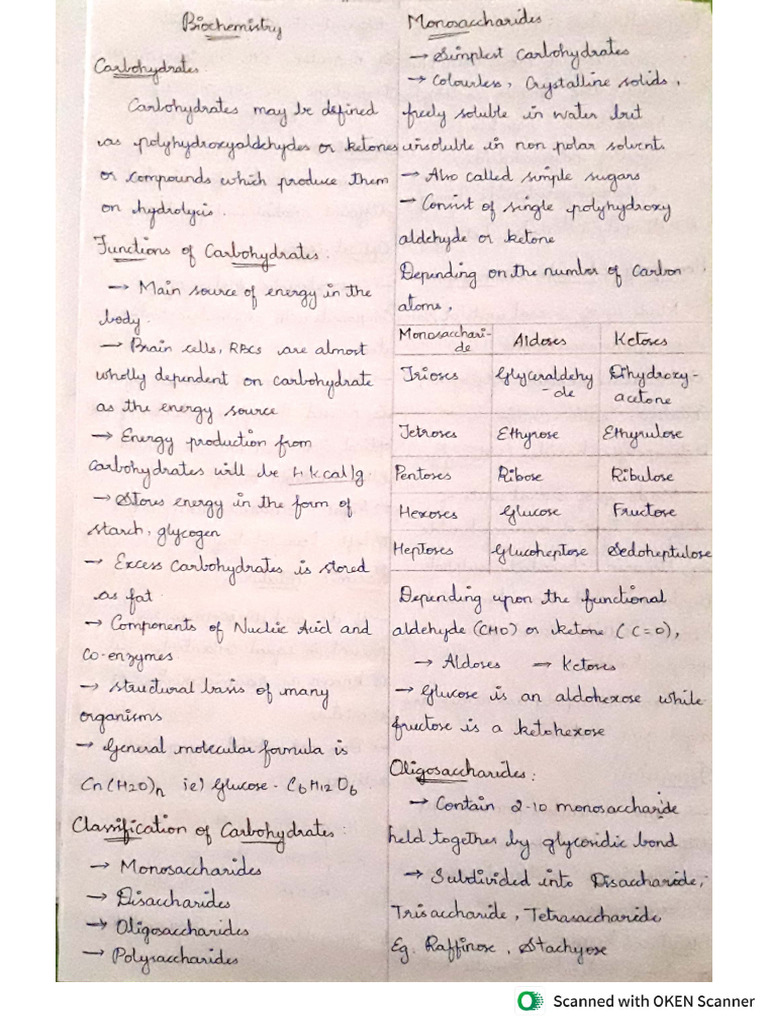 Biochemistry
Carbohydrates.
Carbohydrates may be defined
as polyhydroxyaldehydes or ketones
or compounds which produce them
on hydrolysis.
Functions of Carbohydrates.
→ Main source of energy in the
body.
→ Brain cells, RBCs are almost
wholly dependent on carbohydrate
as the energy source
→ Energy production from
carbohydrates will be 4 kcal/g.
→ Stores energy in the form of
starch, glycogen
→ Excess Carbohydrates is stored
as fat.
→ Components of Nucleic Acid and
Co-enzymes.
→ Structural basis of many
organisms
→ General molecular formula is
Cn(H2O)n ie) Glucose - C6H12O6.
Classification of Carbohydrates:
→ Monosaccharides
→ Disaccharides
→ Oligosaccharides
→ Polysaccharides
Monosaccharides
→ Simplest Carbohydrates
→ Colourless, Crystalline solids,
freely soluble in water but
insoluble in non polar solvent.
→ Also called simple sugars
→ Consist of single polyhydroxy
aldehyde or ketone
Depending on the number of Carbon
atoms,
Monosacchari- Aldoses Ketoses
de
Trioses Glyceraldehy Dihydroxy-
-de acetone
Tetroses Ethyrose Ethyrulose
Pentoses Ribose Ribulose
Hexoses Glucose Fructose
Heptoses Glucoheptose Sedoheptulose
Depending upon the functional
aldehyde (CHO) or ketone (C=O),
→ Aldoses → Ketoses
→ Glucose is an aldohexose while
fructose is a ketohexose
Oligosaccharides:
→ Contain 2-10 monosaccharide
held together by glycosidic bond
→ Subdivided into Disaccharide,
Trisaccharide, Tetrasaccharide
Eg. Raffinose, Stachyose
Scanned with OKEN Scanner